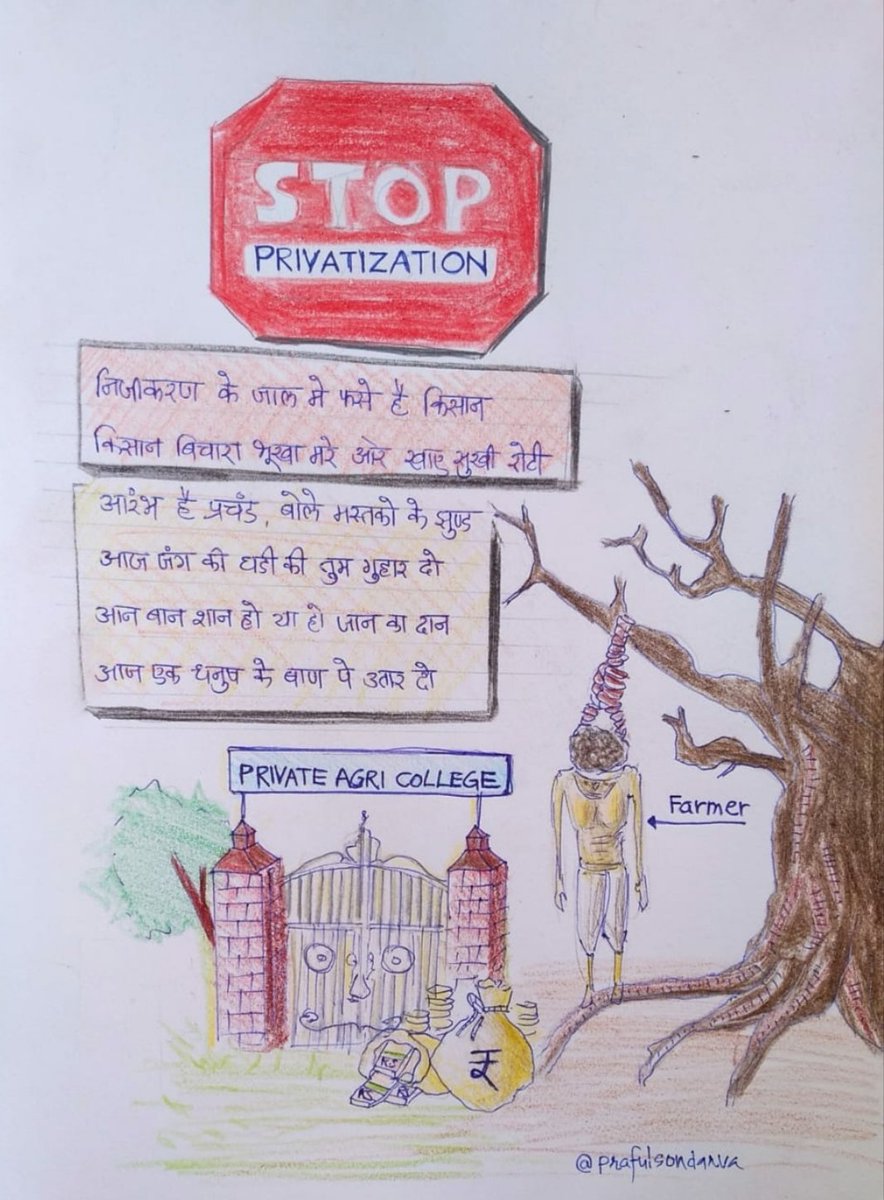 STOP
PRIVATIZATION
निजीकरण के जाल मे फसे है किसान
किसान बिचारा भूखा मरे ओर खाए सुखी रोटी
आरंभ है प्रचंड, बोले मस्तको के झुण्ड
आज जंग की घडी की तुम गुहार दो
आन बान शान हो या हो जान का दान
आज एक धनुष के बाण पे उतार दो
PRIVATE AGRI COLLEGE
Farmer
RS
₹
@prafulsondarva